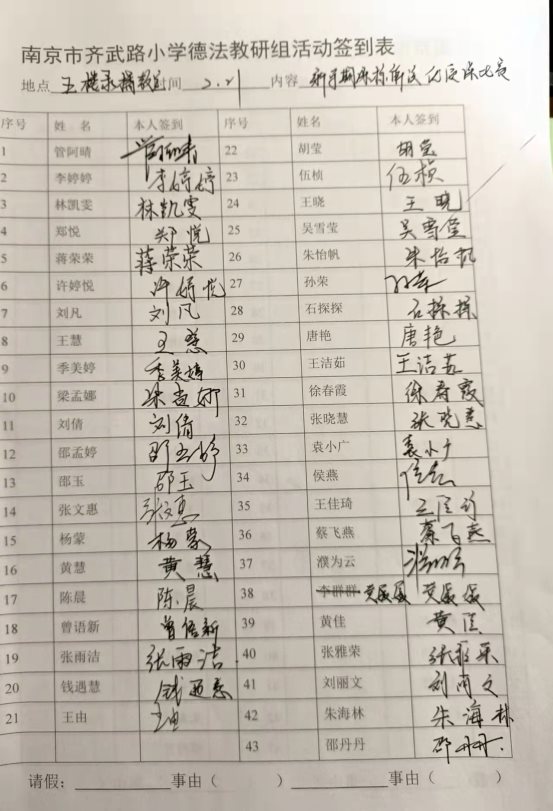 南京市齐武路小学德法教研组活动签到表
地点 五楼录播教室 时间 2.21 内容
序号 姓 名 本人签到 序号 姓名 本人签到
1 管阿晴 管阿晴 22 胡莹 胡莹
2 李婷婷 李婷婷 23 伍桢 伍桢
3 林凯雯 林凯雯 24 王晓 王晓
4 郑悦 郑悦 25 吴雪莹 吴雪莹
5 蒋荣荣 蒋荣荣 26 朱怡帆 朱怡帆
6 许婷悦 许婷悦 27 孙荣 孙荣
7 刘凡 刘凡 28 石探探 石探探
8 王慧 王慧 29 唐艳 唐艳
9 季美婷 季美婷 30 王洁茹 王洁茹
10 梁孟娜 梁孟娜 31 徐春霞 徐春霞
11 刘倩 刘倩 32 张晓慧 张晓慧
12 邵孟婷 邵孟婷 33 袁小广 袁小广
13 邵玉 邵玉 34 侯燕 侯燕
14 张文惠 张文惠 35 王佳琦 王佳琦
15 杨蒙 杨蒙 36 蔡飞燕 蔡飞燕
16 黄慧 黄慧 37 濮为云
17 陈晨 陈晨 38 李群群
18 曾语新 曾语新 39 黄佳 黄佳
19 张雨洁 张雨洁 40 张雅荣 张雅荣
20 钱遇慧 钱遇慧 41 刘丽文 刘丽文
21 王由 王由 42 朱海林 朱海林
43 邵丹丹 邵丹丹
请假：________ 事由（ ）________事由（ ）